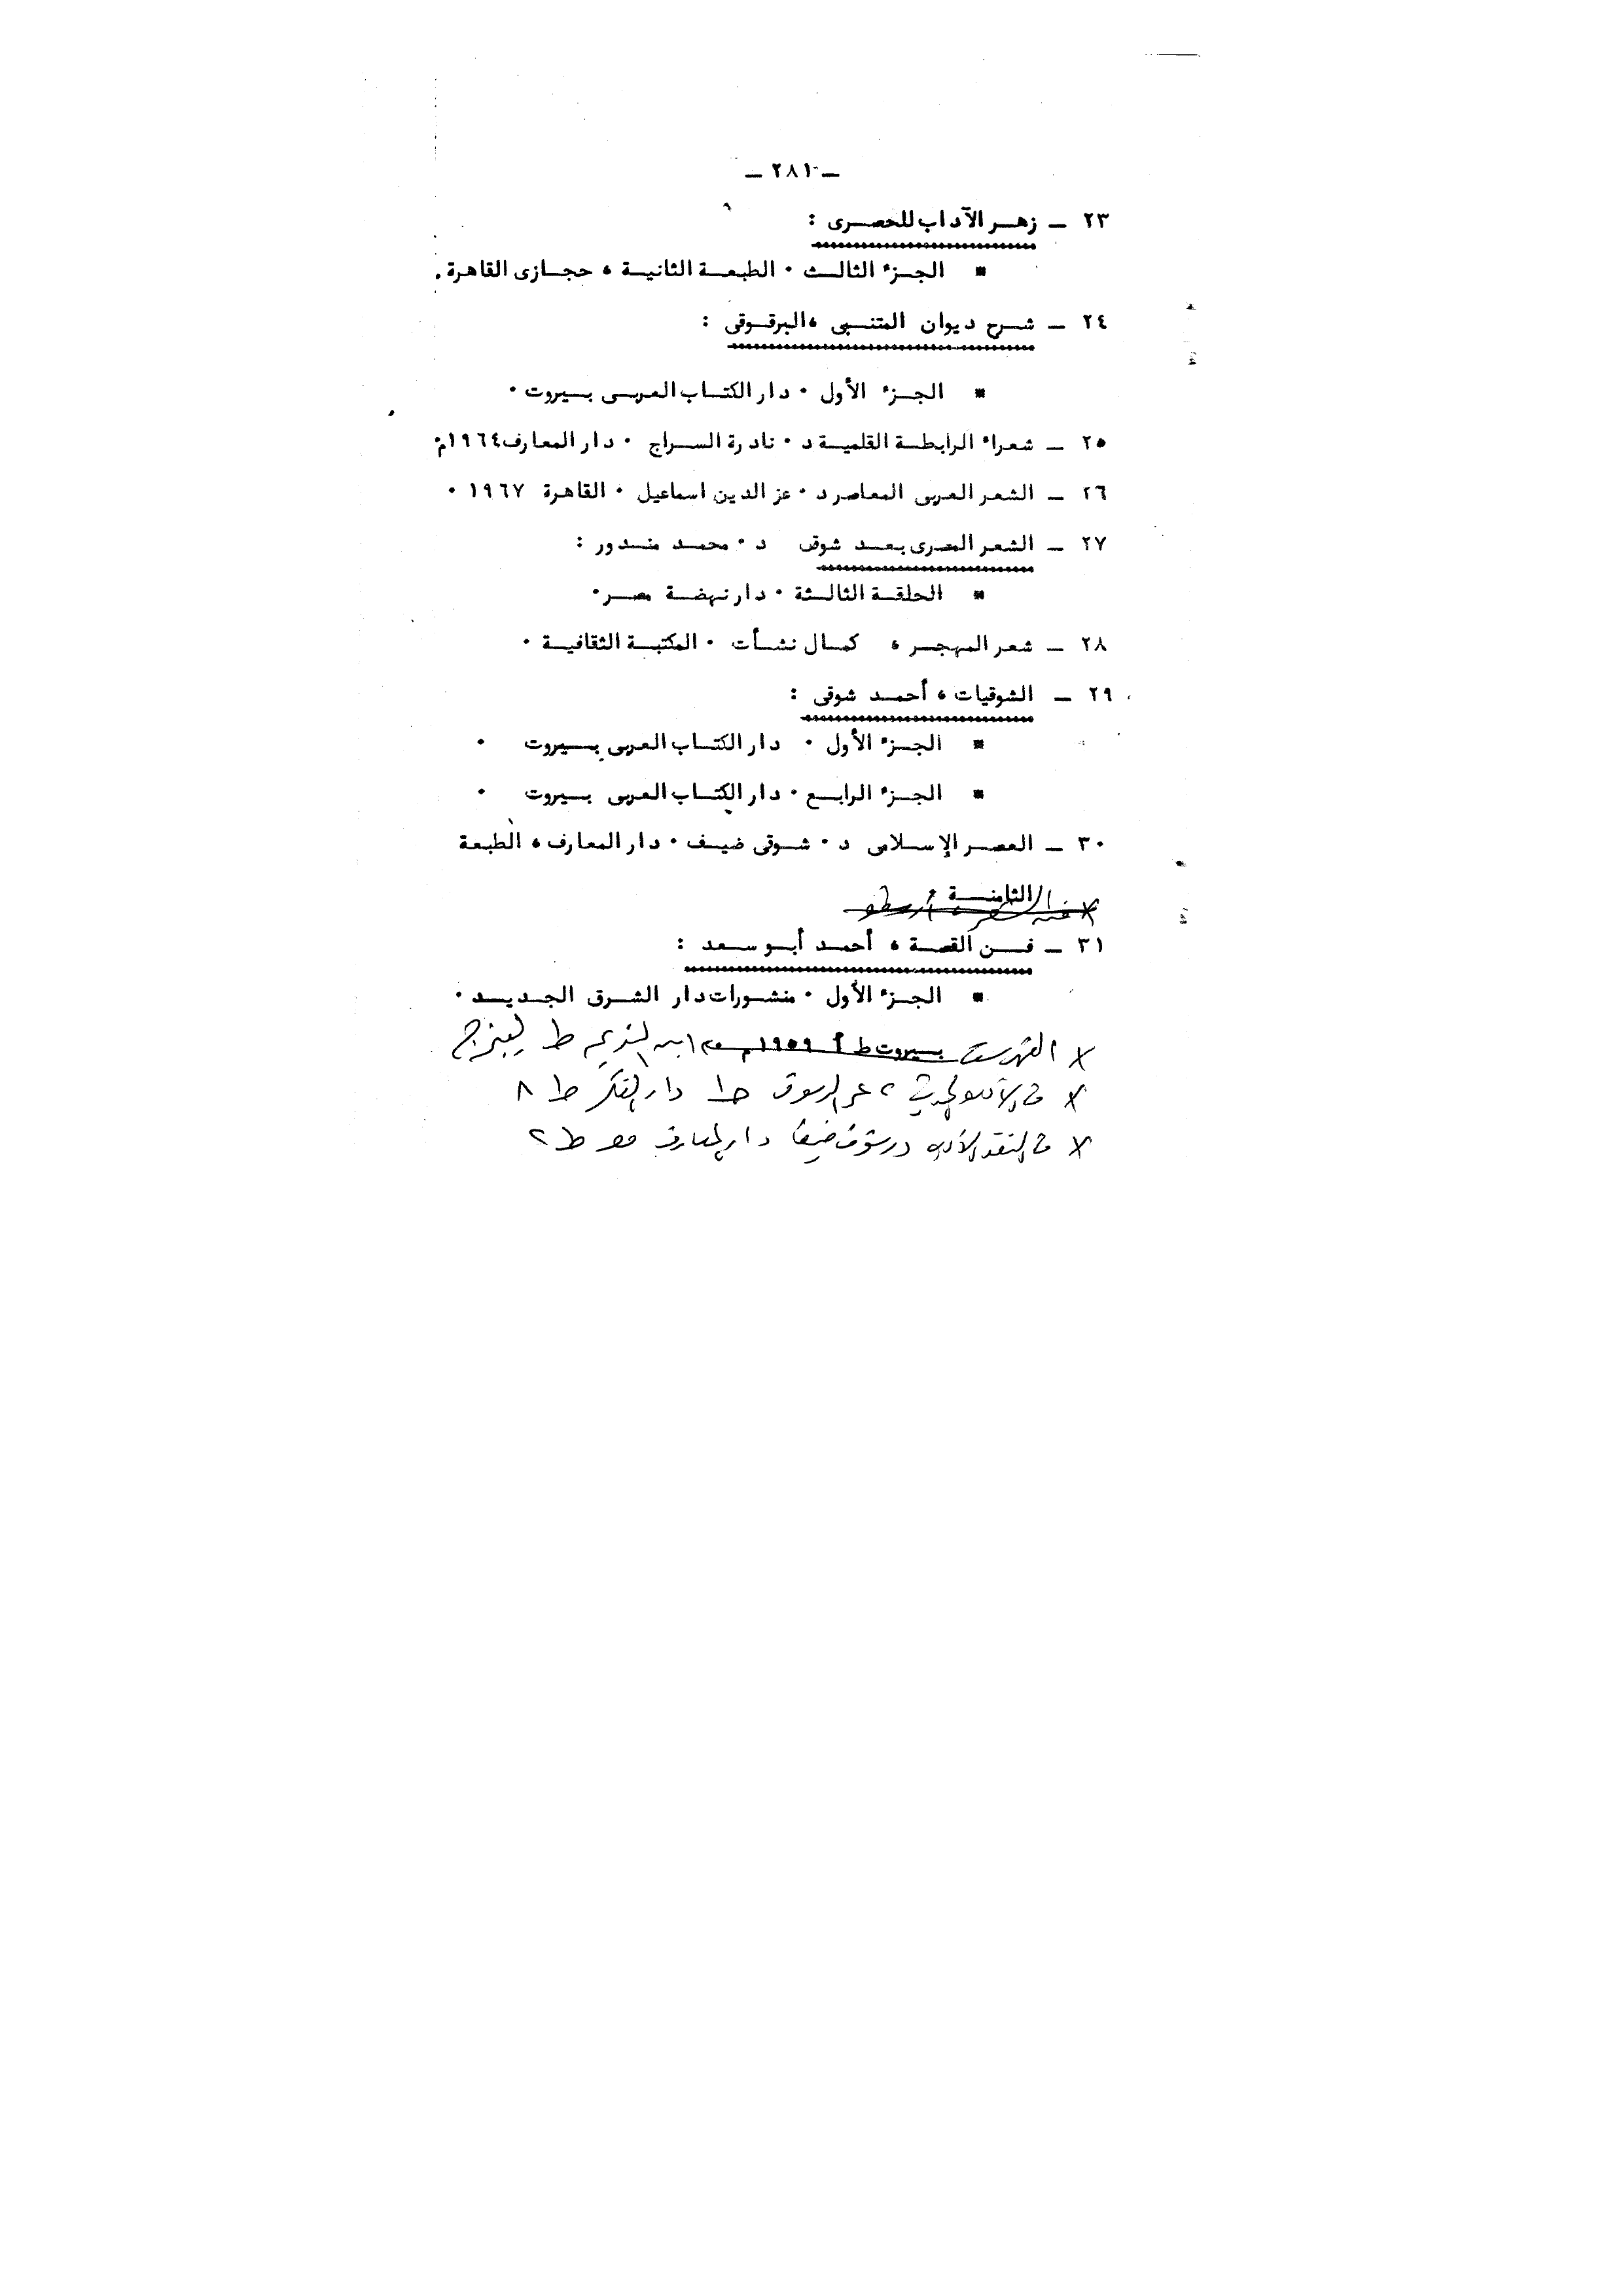 ـ ٢٨١ ـ
٢٣ ـ زهر الآداب للحصرى :
* الجزء الثالث ٠ الطبعة الثانية ، حجازى القاهرة .
٢٤ ـ شرح ديوان المتنبى ، البرقوقى :
* الجزء الأول ٠ دار الكتاب العربى بيروت ٠
٢٥ ـ شعراء الرابطة القلمية د ٠ نادرة السراج ٠ دار المعارف ١٩٦٤م٠
٢٦ ـ الشعر العربى المعاصر د ٠ عز الدين اسماعيل ٠ القاهرة ١٩٦٧ ٠
٢٧ ـ الشعر المصرى بعد شوقى د ٠ محمد مندور :
* الحلقة الثالثة ٠ دار نهضة مصر ٠
٢٨ ـ شعر المهجر ، كمال نشأت ٠ المكتبة الثقافية ٠
٢٩ ـ الشوقيات ، أحمد شوقى :
* الجزء الأول ٠ دار الكتاب العربى بيروت ٠
* الجزء الرابع ٠ دار الكتاب العربى بيروت ٠
٣٠ ـ العصر الإسلامى د ٠ شوقى ضيف ٠ دار المعارف ، الطبعة
الثامنة ٠
٣١ ـ فن القصة ، أحمد أبو سعد :
* الجزء الأول ٠ منشورات دار الشرق الجديد ٠
الفهرست بيروت ط ١٩٥٩م ابن النديم ط ليبزج
دار الفكر ط ٨
فى النقد الأدبى د شوقى ضيف دار المعارف مصر ط ٢